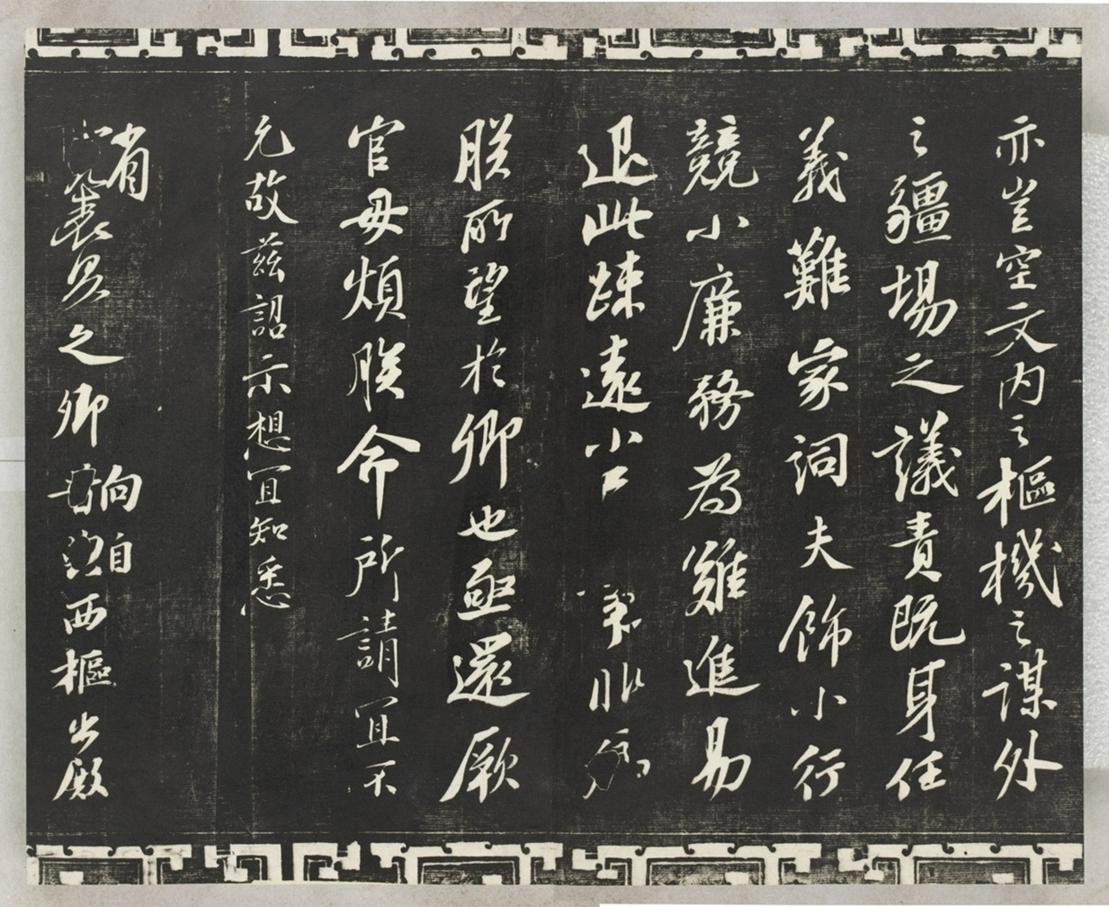 亦豈空文内之樞機之謀外
之疆場之議責既身任
義難家詞夫飾小行
競小廉務為難進易
退此踈遠小
朕所望於卿也亟還厥
官毋煩朕命所請宜不
允故茲詔示想宜知悉
省表具之卿向自西樞出殿